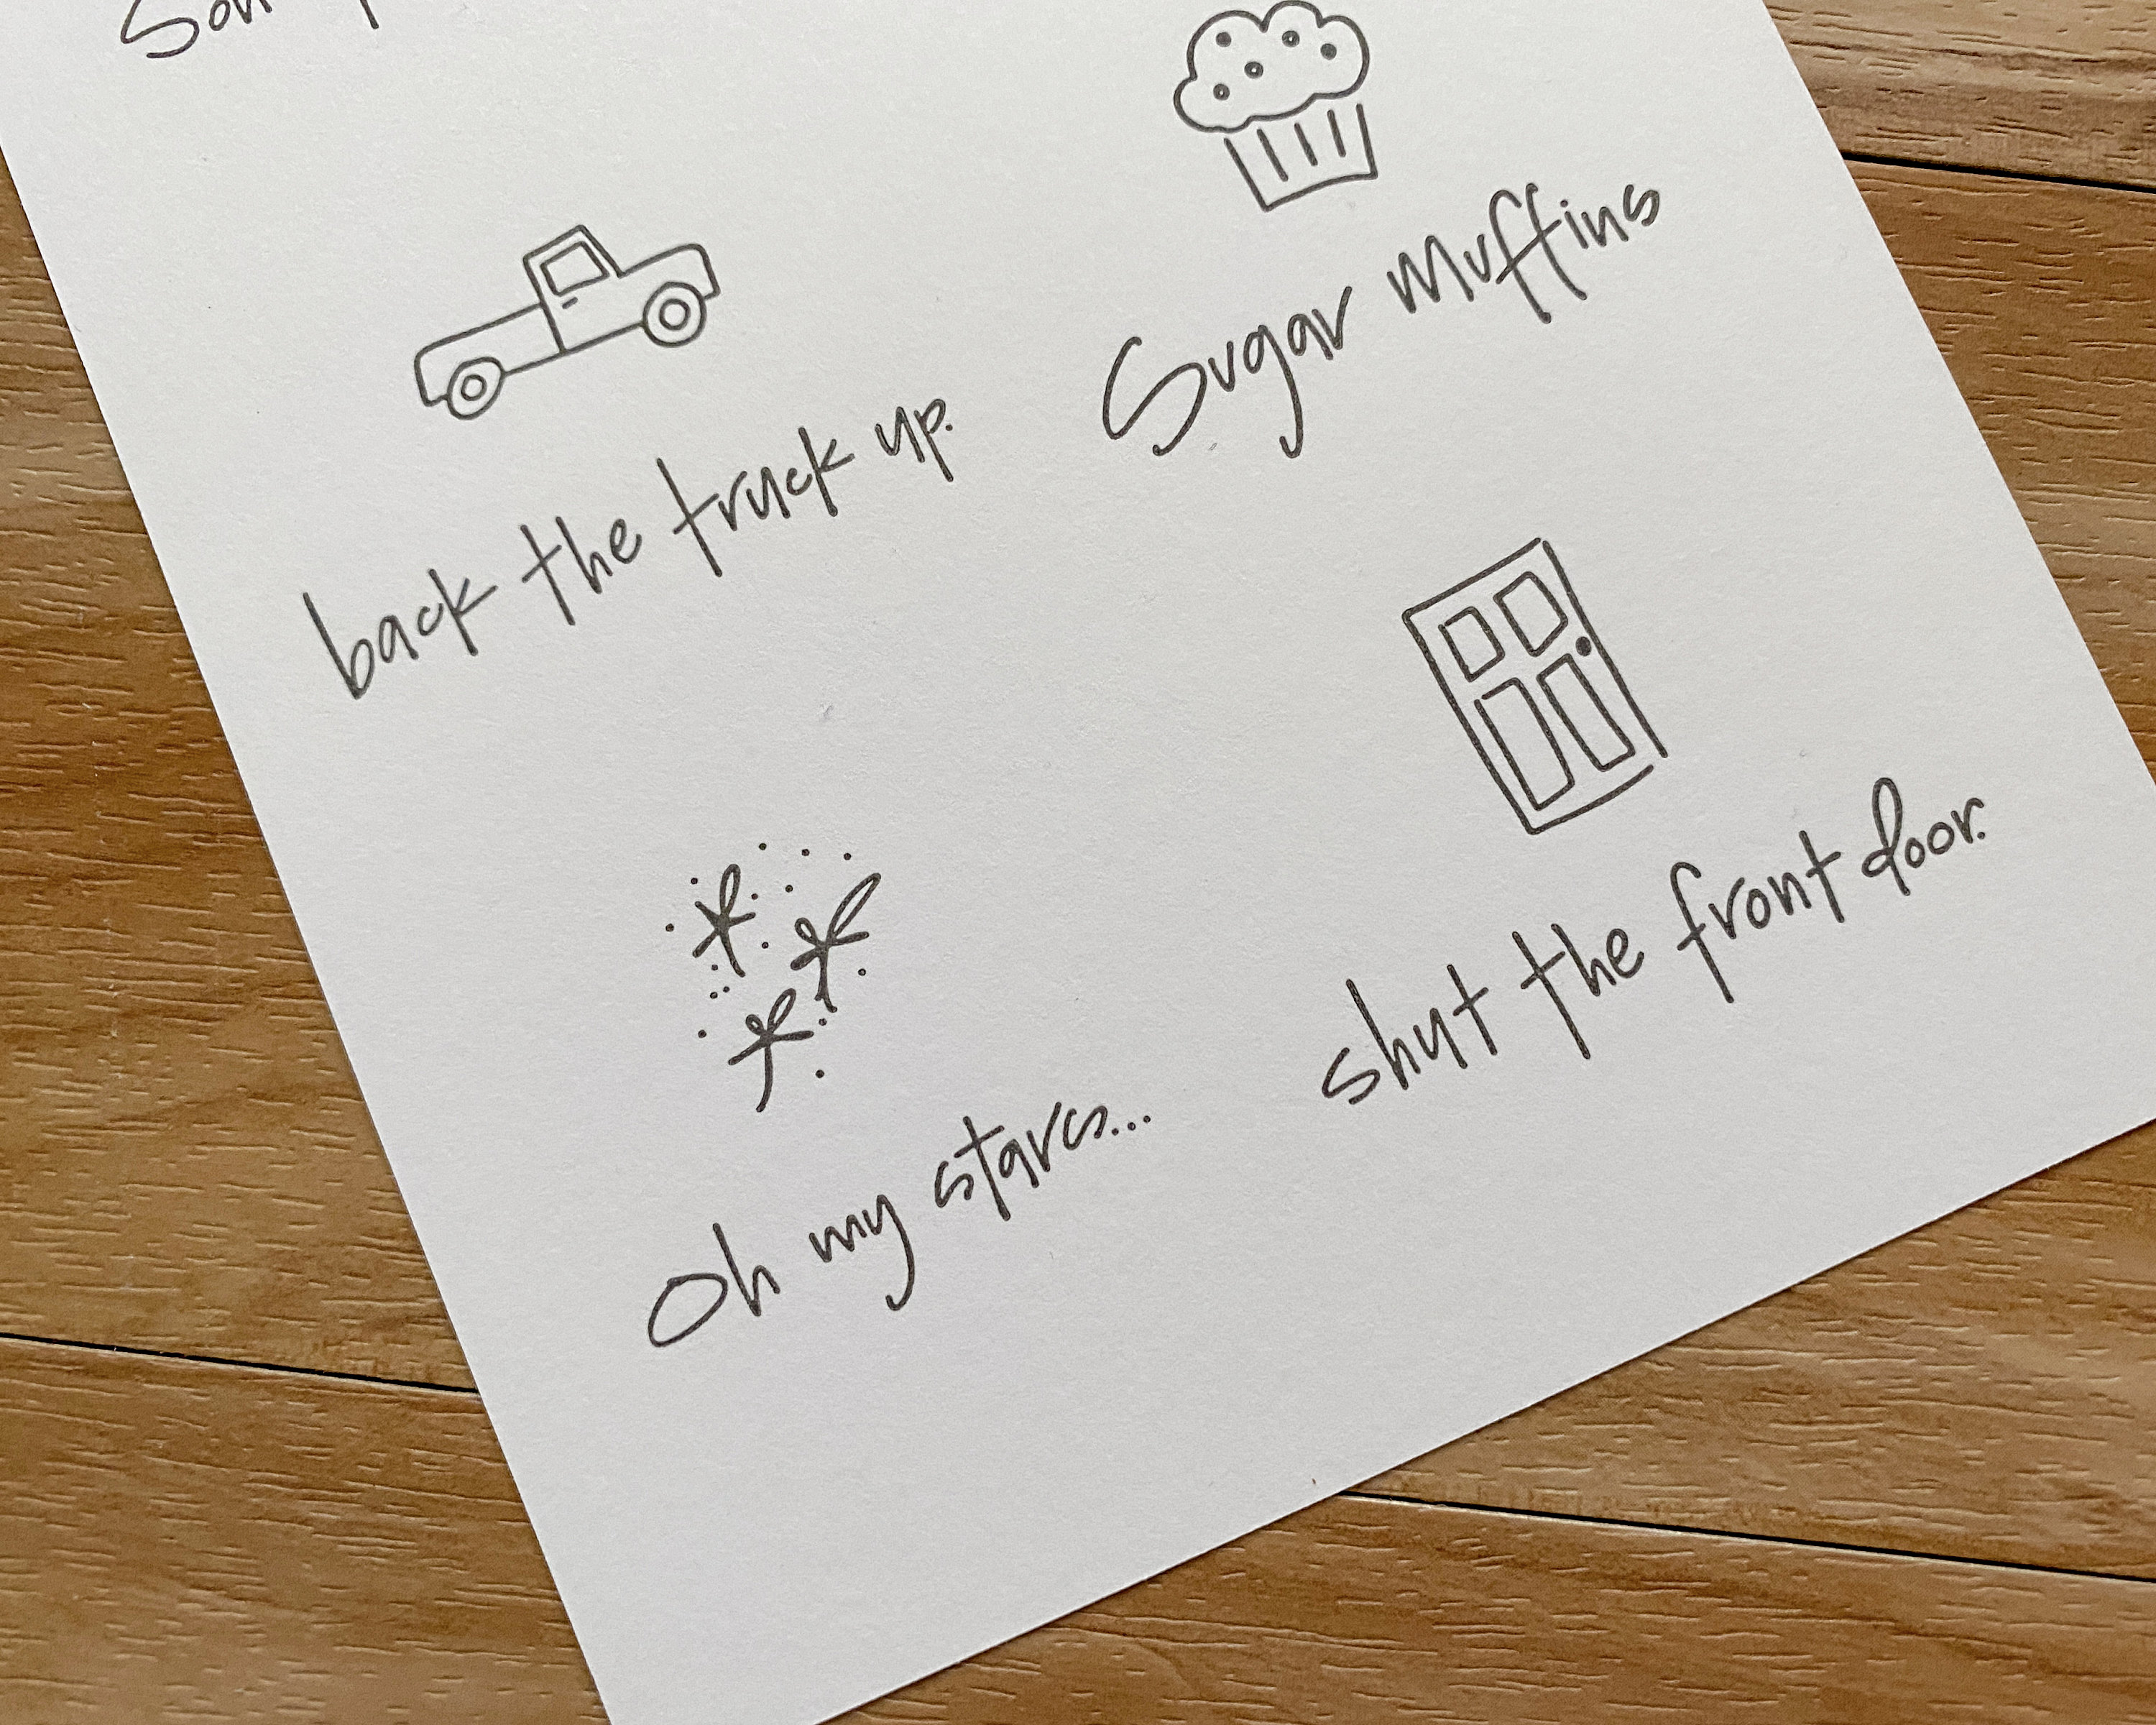 back the truck up.
Sugar Muffins
shut the front door.
Oh my stars...